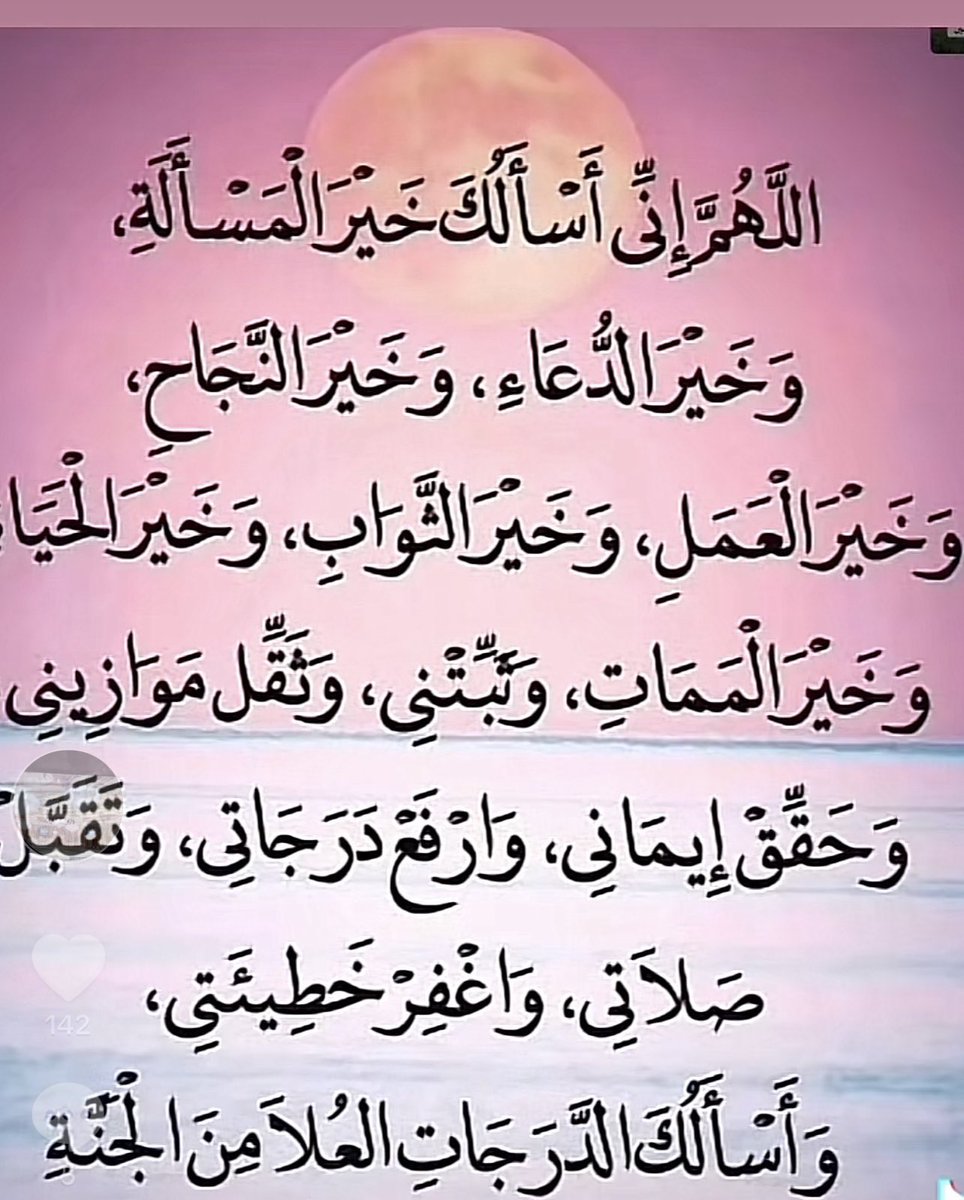 اللَّهُمَّ إِنِّي أَسْأَلُكَ خَيْرَ الْمَسْأَلَةِ،
وَخَيْرَ الدُّعَاءِ، وَخَيْرَ النَّجَاحِ،
وَخَيْرَ الْعَمَلِ، وَخَيْرَ الثَّوَابِ، وَخَيْرَ الْحَيَا
وَخَيْرَ الْمَمَاتِ، وَثَبِّتْنِي، وَثَقِّل مَوَازِينِي
وَحَقِّقْ إِيمَانِي، وَارْفَعْ دَرَجَاتِي، وَتَقَبَّلْ
صَلاَتِي، وَاغْفِرْ خَطِيئَتِي،
142
وَأَسْأَلُكَ الدَّرَجَاتِ العُلاَ مِنَ الْجَنَّةِ